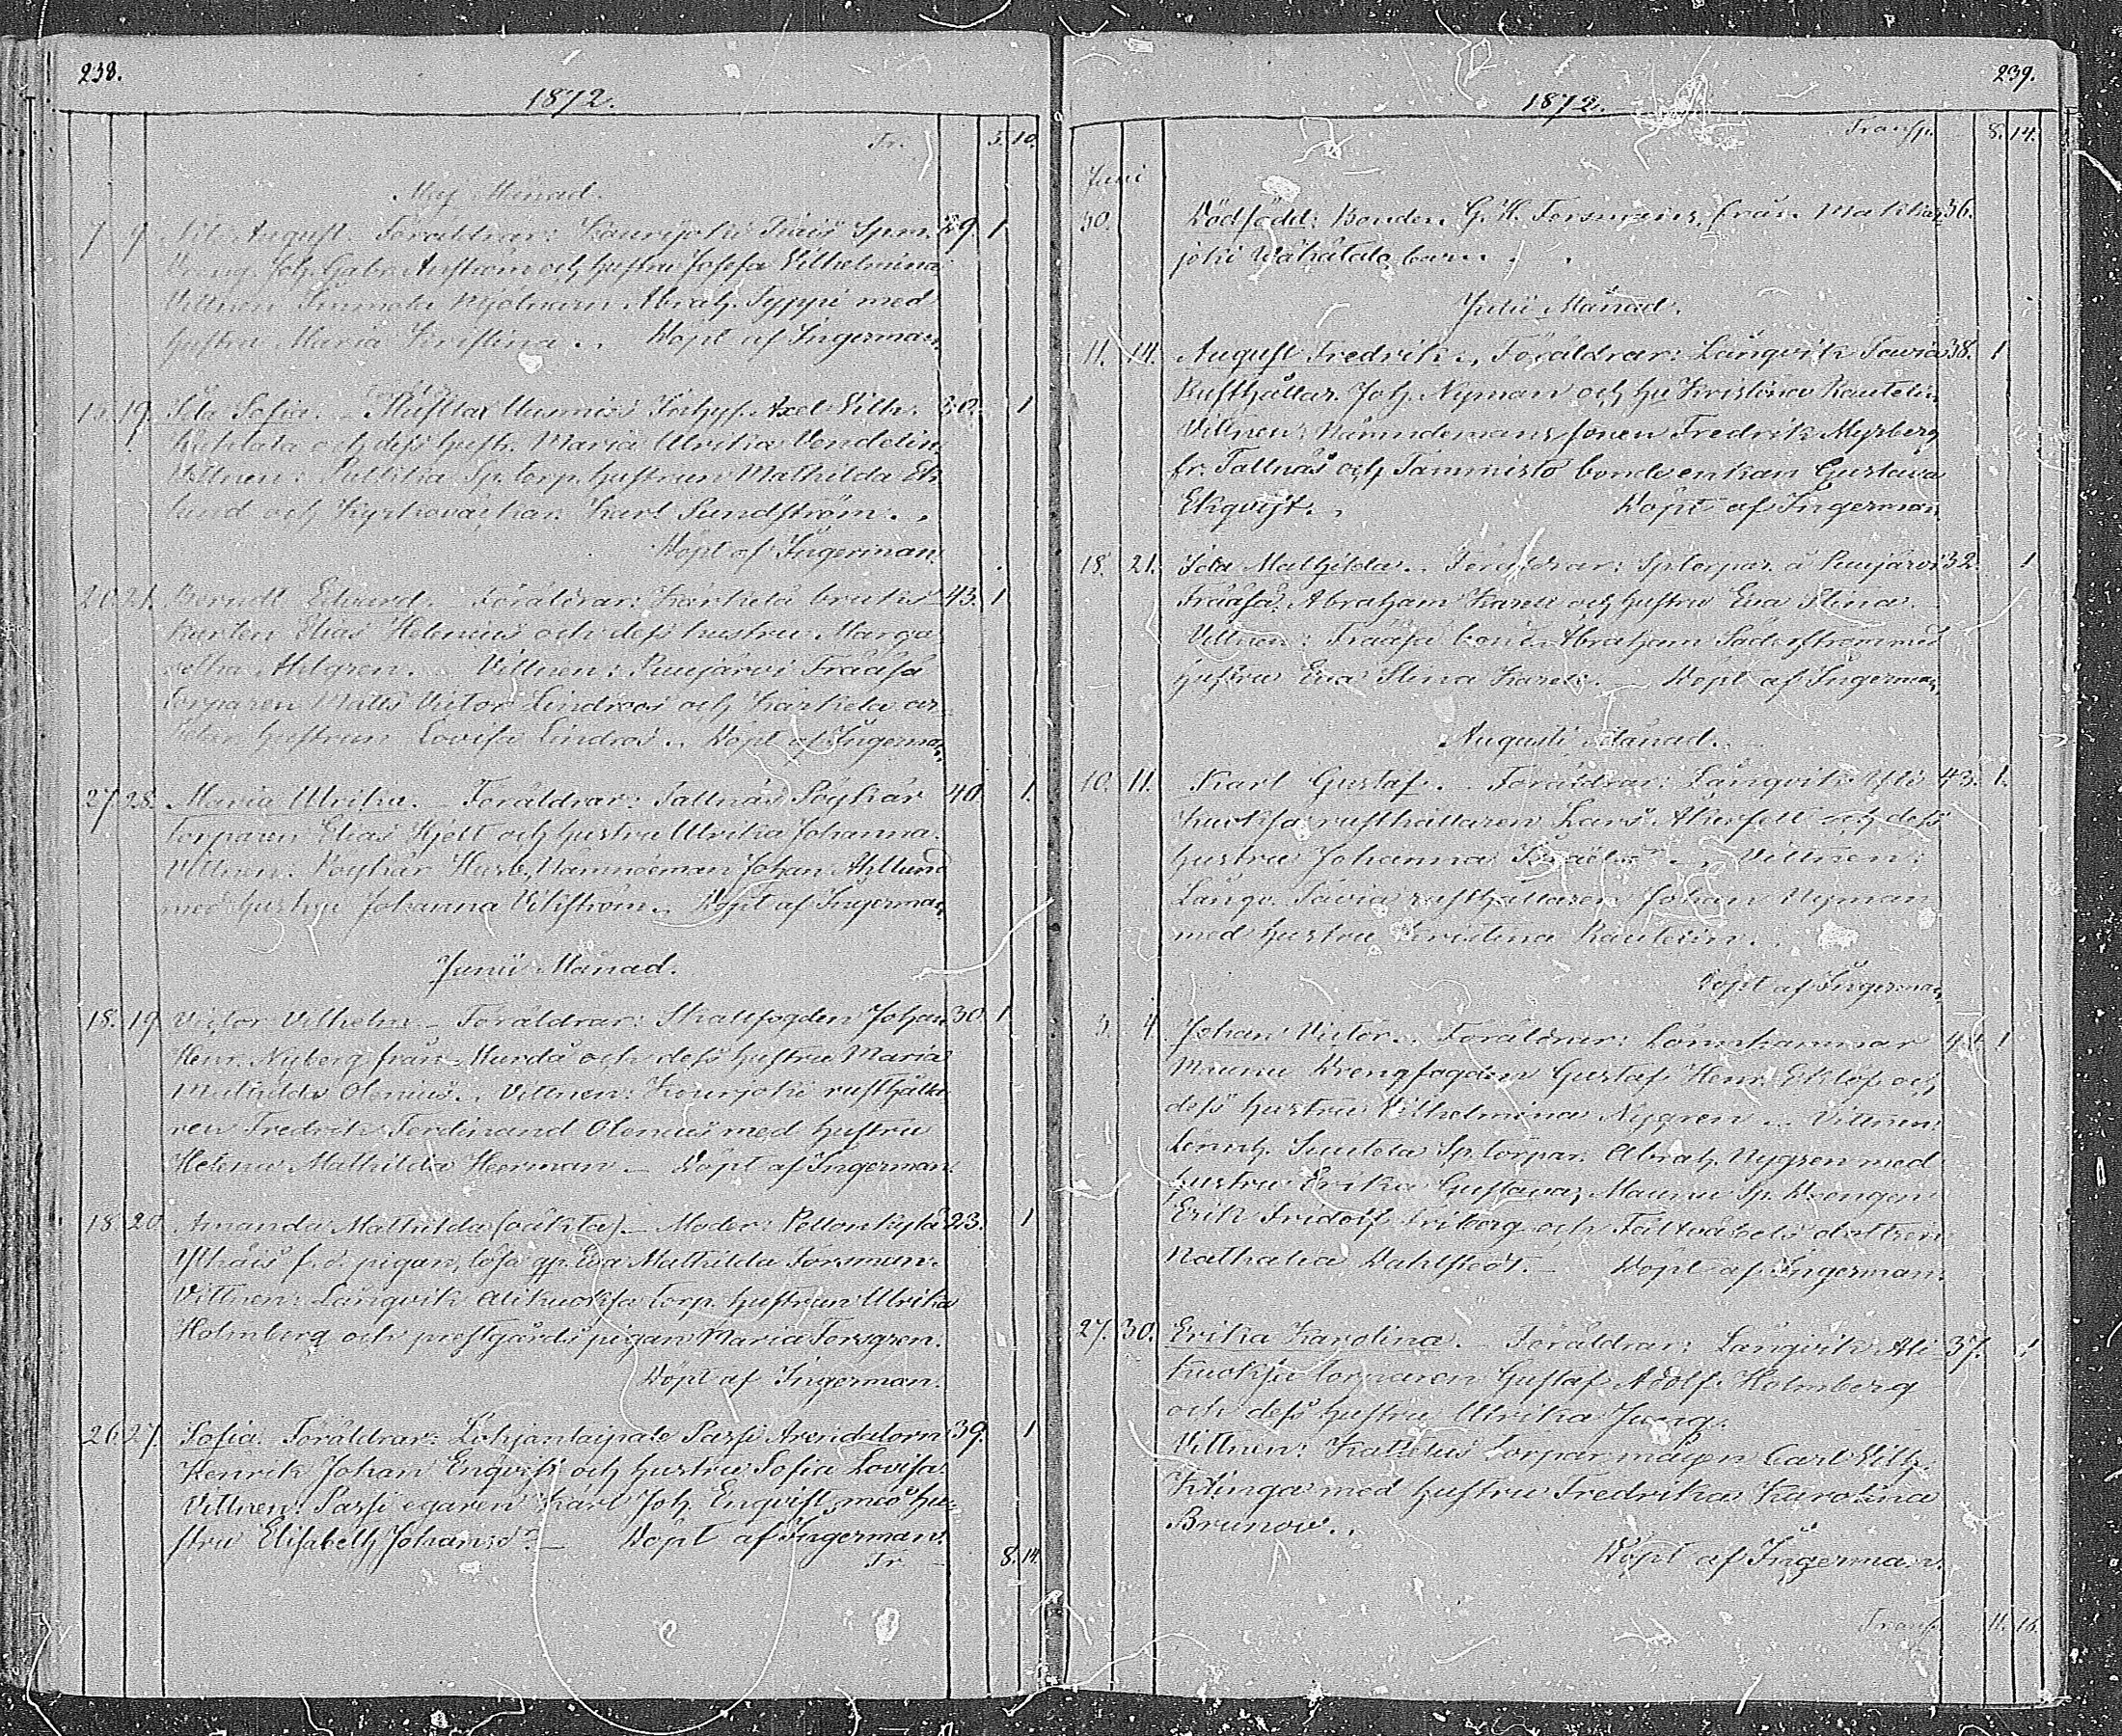 238.
1872.
Fr. 5. 10.
Maj Månad.
7 9 Nils August. Föräldrar: Kourijoki 29 1
Dreng. Joh. Gabr. och hustru Josefa Vilhelmina
Vittnen Mjölnaren Abrah. Typpi med
hustru Maria Kristina. Döpt af Ingerman.
19. Ida Sofia. Axel Vilh. 1
och dess hustr. Maria Ulrika Vendelin.
Vittnen: Sp. torp. hustrun Mathilda Ek
lund och Kyrkoväktar. Karl Sundström.
Döpt af Ingerman.
20. 21. Berndt Edvard. Föräldrar: Karkela bruks 43. 1
Elias Helenius och dess hustru Marga
retha Ahlgren. Vittnen: Puujärvi Trädfsa
torparen Matts Victor Lindroos och Karkela ar
hustrun Lovisa Lindros. Döpt af Ingerman.
27. 28. Maria Ulrika. Föräldrar: Tallnäs Röykär 40. 1.
torparen Elias Hjelt och hustru Ulrika Johanna.
Vittnen: Röykär Husb. Nämndeman Johan Ahllund
med hustru Johanna Vikström. Döpt af Ingerman.
Junii Månad.
18. 19 Victor Vilhelm. Föräldrar: Skallfogden Johan 30. 1
Henr. Nyberg från Murda och dess hustru Maria
Mathilda Olenius. Vittnen: Kourjoki rusthålla
ren Fredrik Ferdinand Olenius med hustru
Helena Mathilda Heerman. Döpt af Ingerman.
18. 20 Amanda Mathilda (oäkta). Moder: Pellonkylä 23. 1
f. d. pigan, lösa qp. Eva Mathilda Forsman.
Vittnen: Långvik Alikuoksa torp. hustrun Ulrika
Holmberg och prestgårds pigan Maria Forsgren.
Döpt af Ingerman.
26. 27. Sofia. Föräldrar: Lohjantaipale Passi Arendatorn 39. 1
Henrik Johan Enqvist och hustru Sofia Lovisa.
Vittnen: Passi egaren Karl Joh. Enqvist med hu-
stru Elisabeth Johansd. Döpt af Ingerman.
Tr. 8. 14.
239.
1872.
Transp. 8. 14.
Juni
30. Dödfödd: Bonden G. H. Forsmans från Makkar 36.
joki Wähätalo barn.
Julii Månad.
11. 14. August Fredrik. Föräldrar: Långvik Tavia 38. 1
Rusthållar. Joh. Nyman och hu Kristina Rautelin.
Vittnen: Nämndemans sonen Fredrik Myrberg
fr. Tallnäs och Tammisto bonde enkan Gustava
Ekqvist. Döpt af Ingerman.
18. 21. Ida Mathilda. Föräldrar: Sptorpar. å Puujärvi 32. 1
Trädfsa. Abraham Karell och hustru Eva Stina.
Vittnen: Trädfsa bond. Abraham Söderström med
hustru Eva Stina Karell. Döpt af Ingerman.
Augusti Månad.
10. 11. Karl Gustaf. Föräldrar: Långvik Yli 43. 1.
kuoksa rusthållaren Lars Åkerfelt och dess
hustru Johanna Vittnen:
Långv. Tavia rusthållaren Johan Nyman
med hustru Kristina Rautelin.
Döpt af Ingerman.
3. 4. Johan Victor. Föräldrar: Lönnhammar 44 1
Maunu Drengfogden Gustaf Henr. Eklöf och
dess hustru Vilhelmina Nygren. Vittnen:
Lönnh. Suutela Sp. torpar. Abrah. Nygren med
hustru Erika Gustava, Maunu Sp. Drengen
Erik Fridolf Friberg och Fältväbels dottren
Nathalia Dahlstedt. Döpt af Ingerman.
27. 30. Erika Karolina. Föräldrar: Långvik Ali 37. 1
kuoksa torparen Gustaf Adolf Holmberg
och dess hustru Ulrika Jung.
Vittnen: Kattelus torpar mågen Carl Vilh.
Klinga med hustru Fredrika Karolina
Brunow.
Döpt af Ingerman.
Transp. 11. 16.